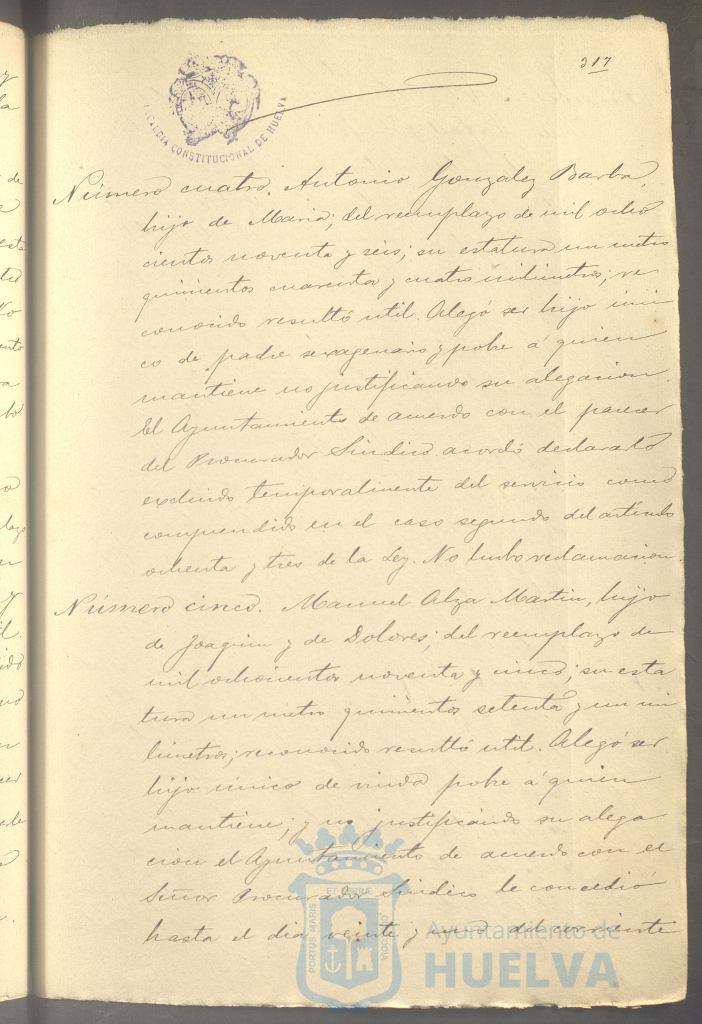 317
ALCALDIA CONSTITUCIONAL DE HUELVA
Número cuatro. Antonio Gonzalez Barba,
hijo de Maria; del reemplazo de mil ocho
cientos noventa y seis; su estatura un metro
quinientos cuarenta y cuatro milimetros; re
conocido resultó util. Alegó ser hijo úni
co de padre sexagenario y pobre á quien
mantiene no justificando su alegacion.
El Ayuntamiento de acuerdo con el parecer
del Procurador Sindico acordó declararlo
excluido temporalmente del servicio como
comprendido en el caso segundo del artículo
ochenta y tres de la Ley. No hubo reclamacion.
Número cinco. Manuel Alza Martin, hijo
de Joaquin y de Dolores; del reemplazo de
mil ochocientos noventa y cinco; su esta
tura un metro quinientos setenta y un mi
limetros; reconocido resultó util. Alegó ser
hijo único de viuda pobre á quien
mantiene; y no justificando su alega
cion el Ayuntamiento de acuerdo con el
Señor Procurador Sindico le concedió
hasta el dia veinte y uno del corriente
PORTUS MARIS ET TERRÆ CUSTODIA
Ayuntamiento de
HUELVA